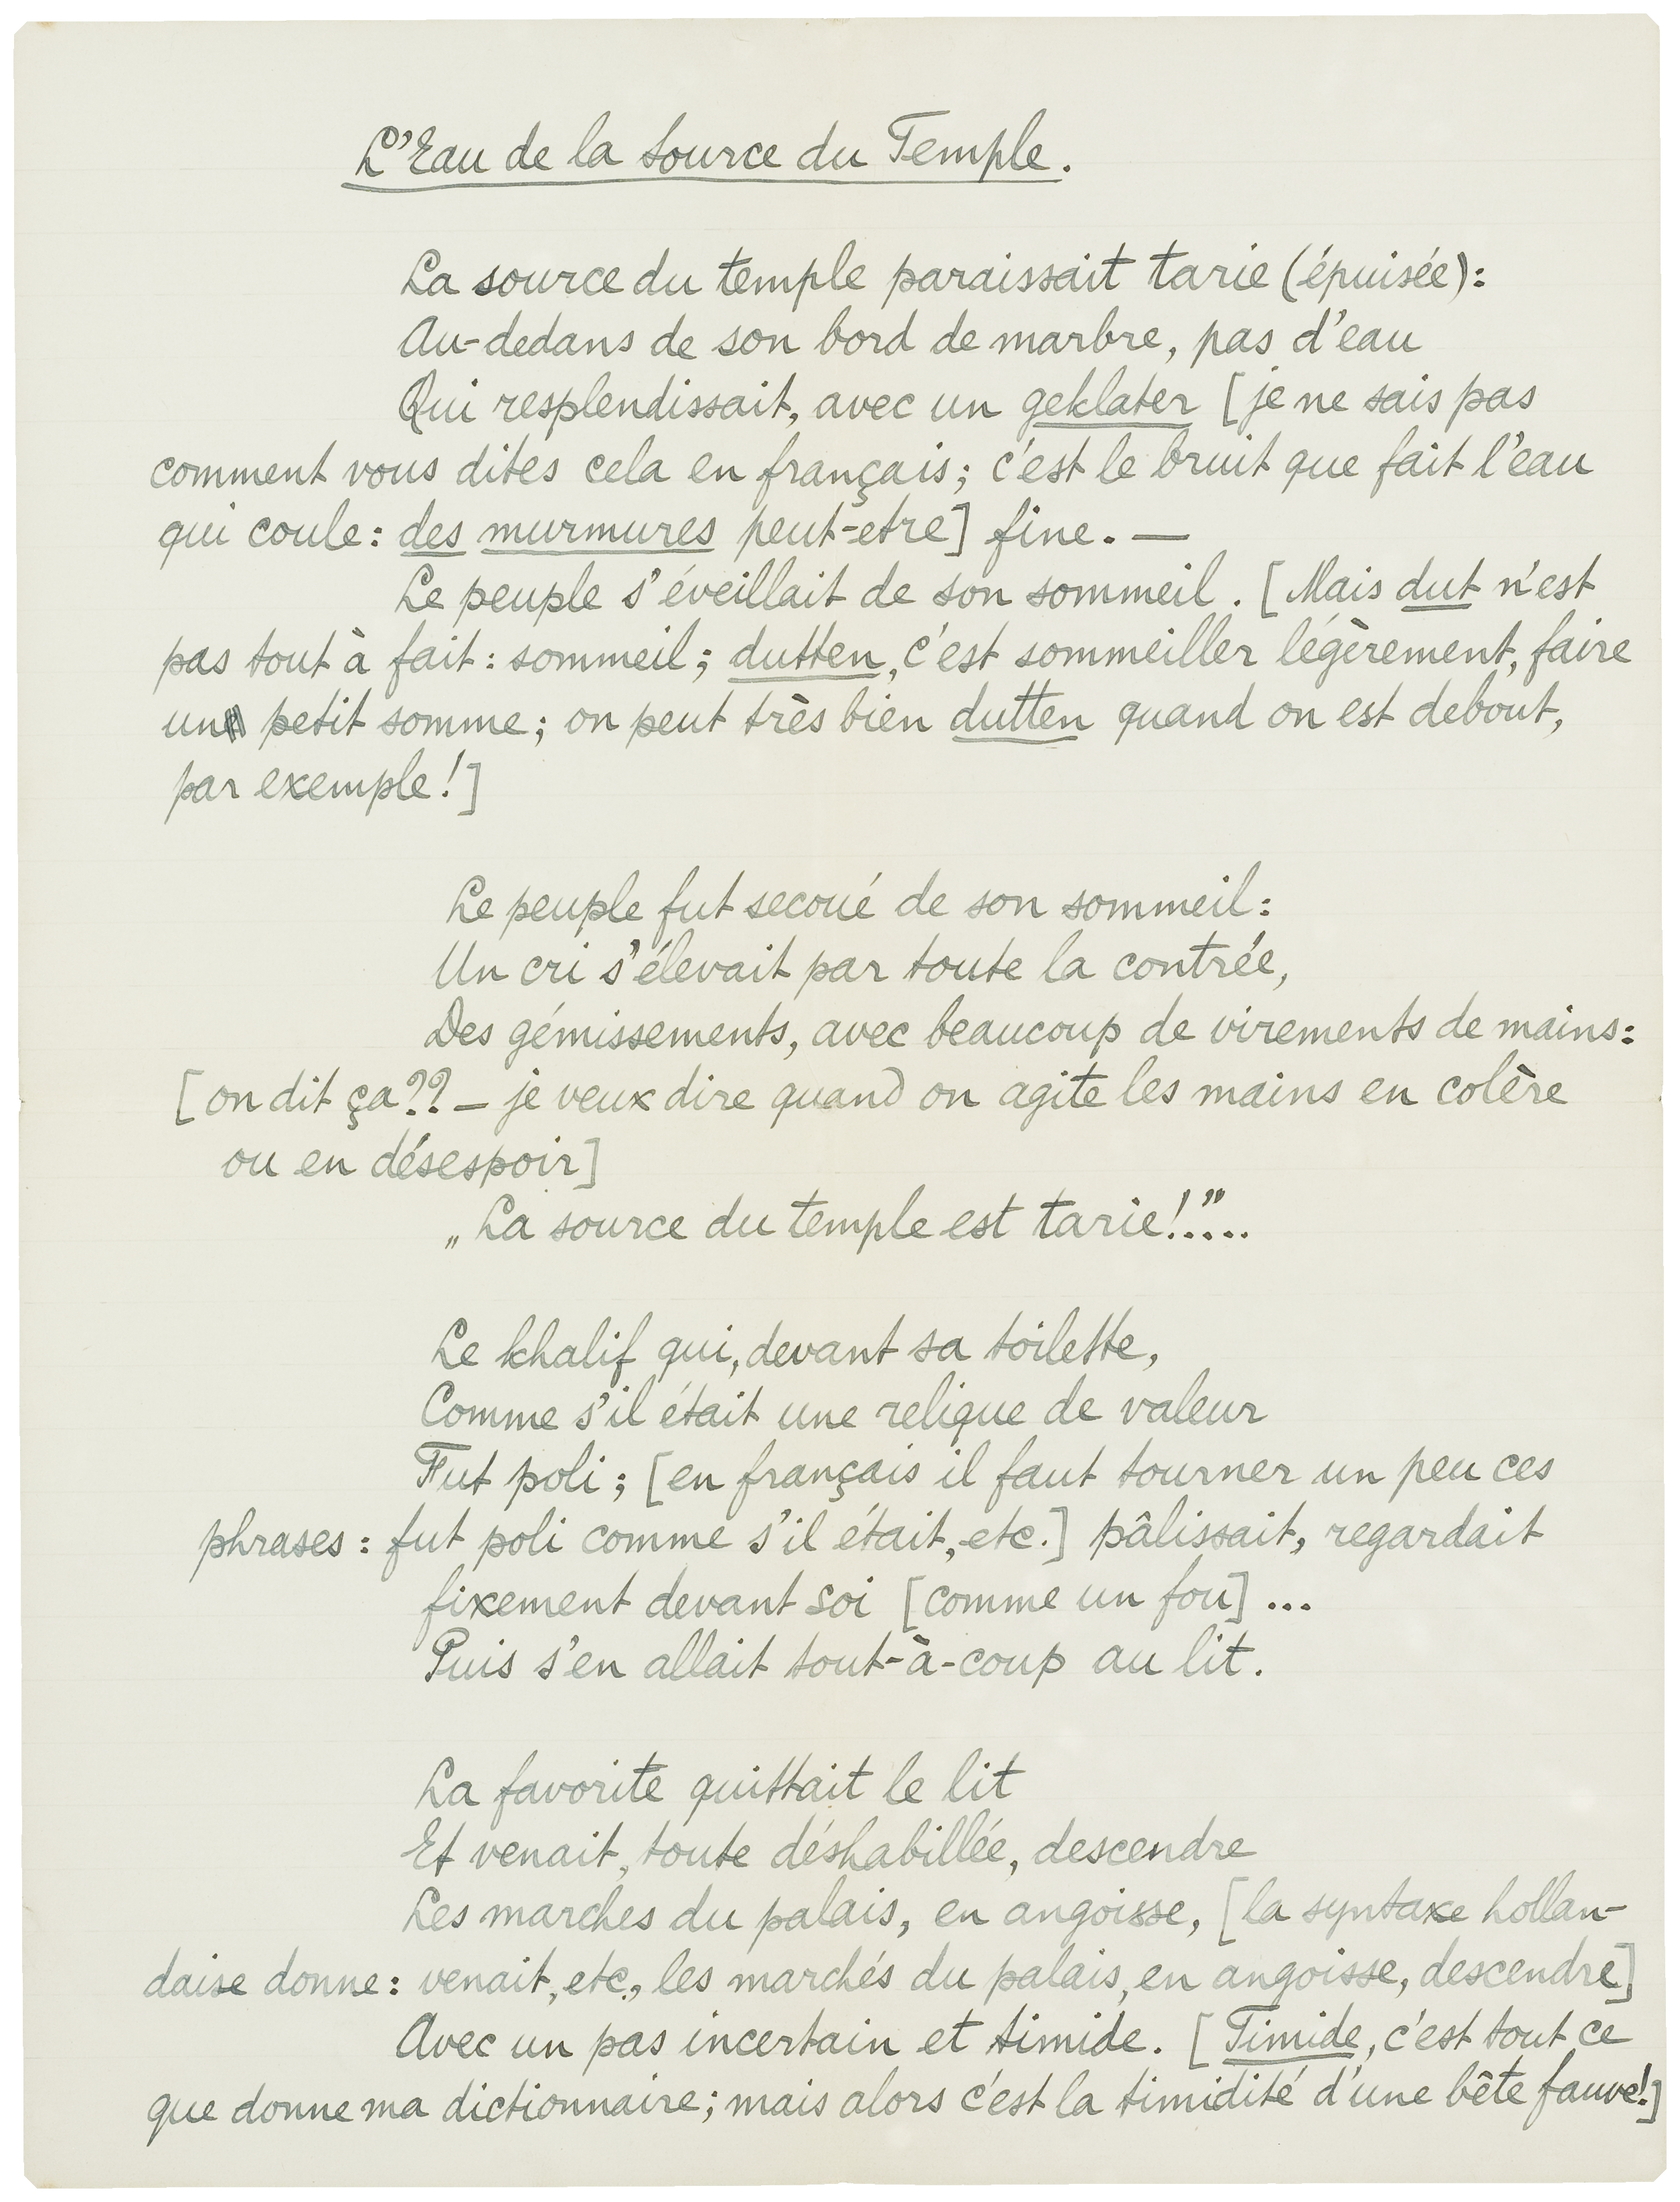 L'Eau de la Source du Temple.
La source du temple paraissait tarie (épuisée):
Au-dedans de son bord de marbre, pas d'eau
Qui resplendissait, avec un geklater [je ne sais pas
comment vous dites cela en français; c'est le bruit que fait l'eau
qui coule: des murmures peut-etre] fine. —
Le peuple s'éveillait de son sommeil. [Mais dut n'est
pas tout à fait: sommeil; dutten, c'est sommeiller légèrement, faire
un petit somme; on peut très bien dutten quand on est debout,
par exemple!]
Le peuple fut secoué de son sommeil:
Un cri s'élevait par toute la contrée,
Des gémissements, avec beaucoup de virements de mains:
[on dit ça?? — je veux dire quand on agite les mains en colère
ou en désespoir]
„La source du temple est tarie!"....
Le khalif qui, devant sa toilette,
Comme s'il était une relique de valeur
Fut poli; [en français il faut tourner un peu ces
phrases: fut poli comme s'il était, etc.] pâlissait, regardait
fixement devant soi [comme un fou]...
Puis s'en allait tout-à-coup au lit.
La favorite quittait le lit
Et venait, toute déshabillée, descendre
Les marches du palais, en angoisse, [la syntaxe hollan-
daise donne: venait, etc., les marchés du palais, en angoisse, descendre]
Avec un pas incertain et timide. [Timide, c'est tout ce
que donne ma dictionnaire; mais alors c'est la timidité d'une bête fauve!]